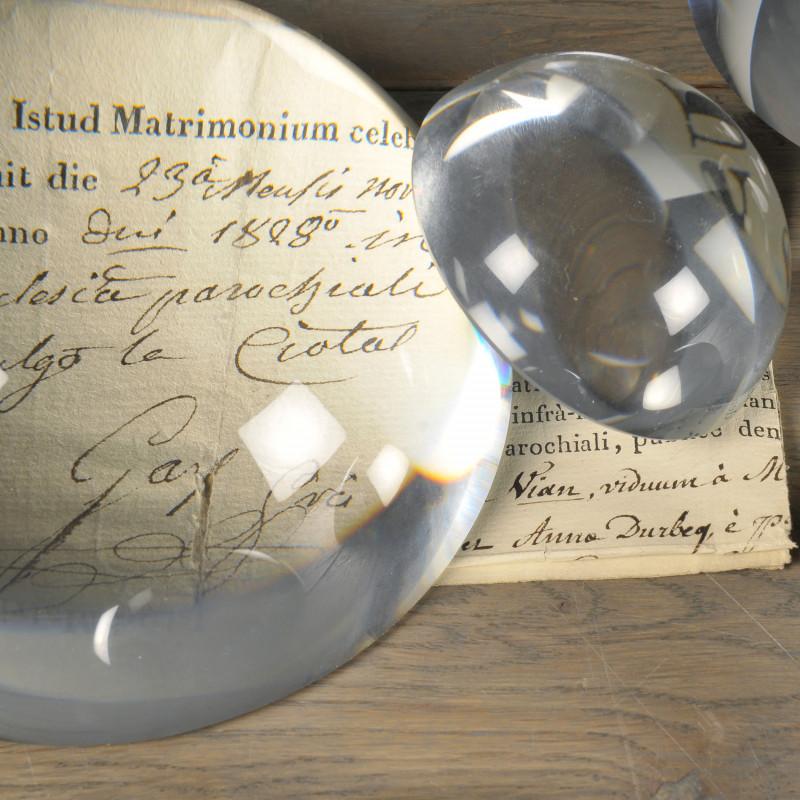 Istud Matrimonium celeb
it die 23â Mensis nov
nno Dni 1828º in
clesiâ parochiali
ulgò la Ciotat
infrà-
arochiali, den
Vian, viduum à M
Anna Durbeq, è